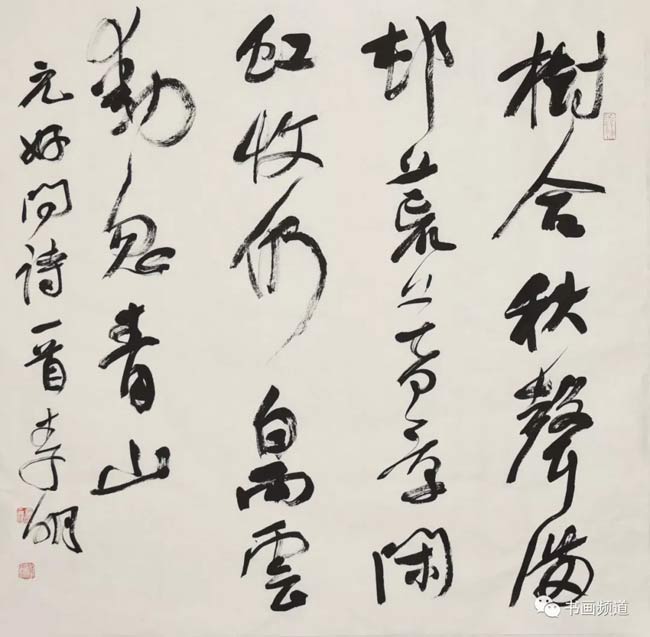 樹合秋聲滿
邨荒暮景閑
虹收仍白雨雲
動忽青山
元好問詩一首李明
书画频道